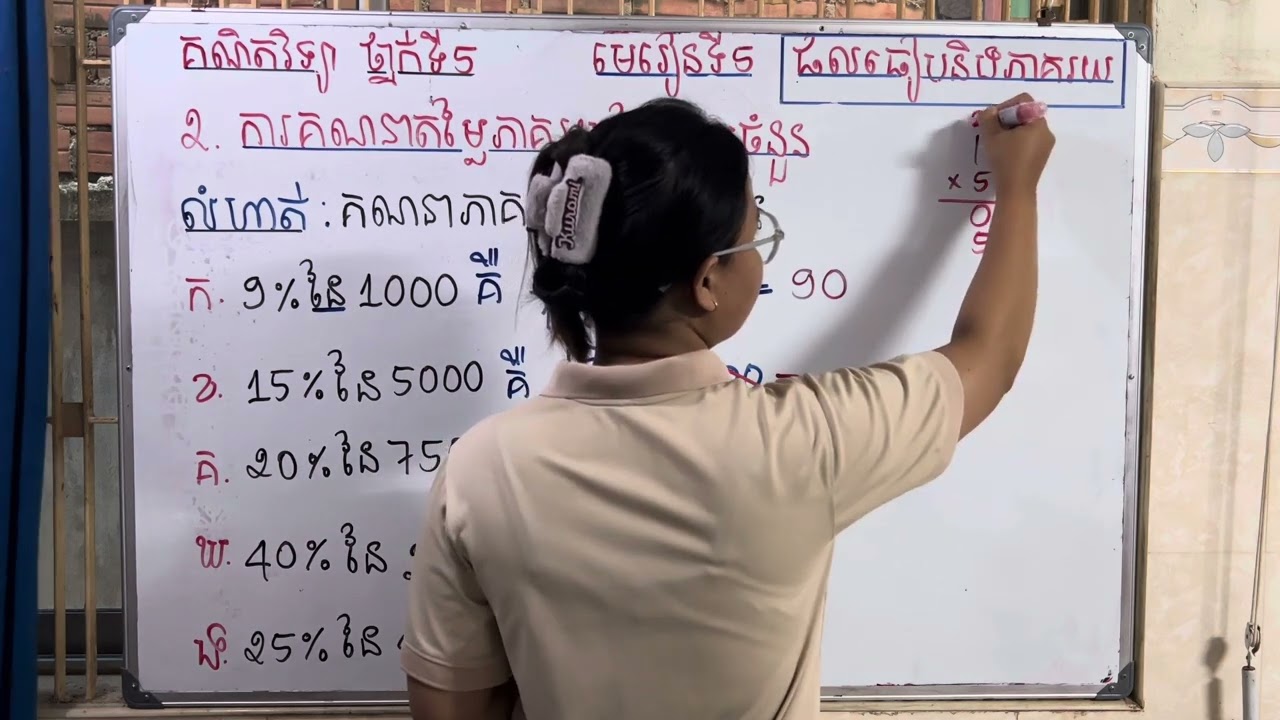 គណិតវិទ្យា ថ្នាក់ទី5 មេរៀនទី5 ផលធៀបនិងភាគរយ
2. ការគណនាតម្លៃភាគរយ ចំនួន
លំហាត់ : គណនាភាគ
ក. 9% នៃ 1000 គឺ = 90
ខ. 15% នៃ 5000 គឺ
គ. 20% នៃ 75
ឃ. 40% នៃ
ង. 25% នៃ
× 5
0
5
Kuromi